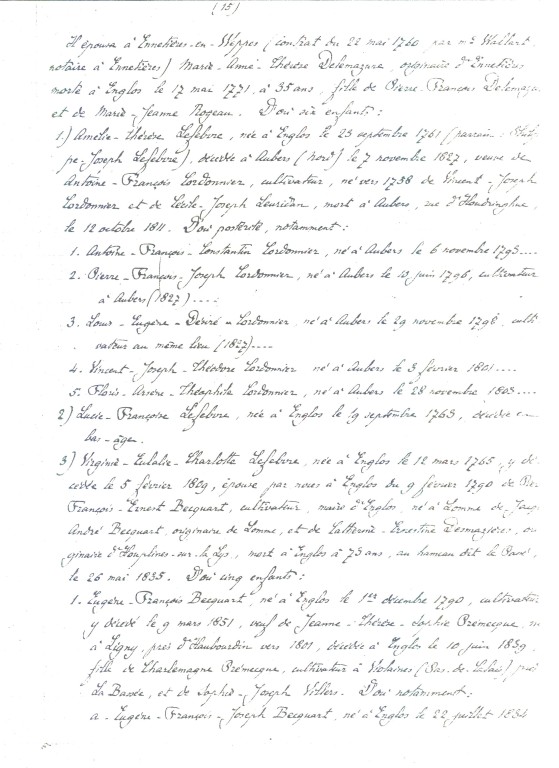 (15)
Il épouse à Ennetières-en-Weppes (contrat du 22 mai 1760 par me Wallart
notaire à Ennetières) Marie-Aimé-Thérèse Delemazure, originaire d'Ennetières
morte à Englos le 17 mai 1771, à 35 ans, fille de Pierre-François Delemazu
et de Marie-Jeanne Rogeau. D'où six enfants:
1.) Amélie-Thérèse Lefebvre, née à Englos le 23 septembre 1761 (parrain: Phili
pe-Joseph Lefebvre), décédée à Aubers (Nord) le 7 novembre 1827, veuve de
Antoine-François Cordonnier, cultivateur, né vers 1758 de Vincent-Joseph
Cordonnier et de Cécile-Joseph Leuridan, mort à Aubers, rue d'Houdringhue,
le 12 octobre 1811. D'où postérité, notamment:
1. Antoine-François-Constantin Cordonnier, né à Aubers le 6 novembre 1793....
2. Pierre-François-Joseph Cordonnier, né à Aubers le 10 juin 1796, cultivateur
à Aubers (1827)....
3. Louis-Eugène-Désiré-Cordonnier, né à Aubers le 29 novembre 1798, culti
vateur au même lieu (1827)....
4. Vincent-Joseph-Théodore Cordonnier né à Aubers le 3 février 1801....
5. Floris-Arsène-Théophile Cordonnier, né à Aubers le 28 novembre 1803....
2) Lucie-Françoise Lefebvre, née à Englos le 19 septembre 1763, décédée en
bas-âge.
3) Virginie-Eulalie-Charlotte Lefebvre, née à Englos le 12 mars 1765, y dé-
cédée le 5 février 1809, épouse par noces à Englos du 9 février 1790 de Pier
François-Ernest Becquart, cultivateur, maire d'Englos, né à Lomme de Jacq
André Becquart, originaire de Lomme, et de Catherine-Ernestine Desmazières, ou
ginaire d'Houplines-sur-la-Lys, mort à Englos à 73 ans, au hameau dit le Pavé,
le 26 mai 1835. D'où cinq enfants:
1. Eugène-François Becquart, né à Englos le 1er décembre 1790, cultivateur
y décédé le 9 mars 1851, veuf de Jeanne-Thérèse-Sophie Prémecque, n
à Ligny, près d'Haubourdin vers 1801, décédée à Englos le 10 juin 1839,
fille de Charlemagne Prémecque, cultivateur à Violaines (Pas-de-Calais) près
La Bassée, et de Sophie-Joseph Villers. D'où notamment:
a-Eugène-François-Joseph Becquart, né à Englos le 22 juillet 1834